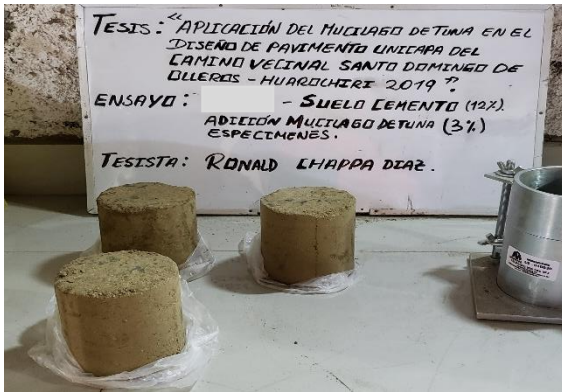 TESIS: "APLICACIÓN DEL MUCILAGO DE TUNA EN EL
DISEÑO DE PAVIMENTO UNICAPA DEL
CAMINO VECINAL SANTO DOMINGO DE
OLLEROS - HUAROCHIRI 2019".
ENSAYO: - SUELO CEMENTO (12%).
ADICIÓN MUCILAGO DE TUNA (3%)
ESPECIMENES.
TESISTA: RONALD CHAPPA DIAZ.